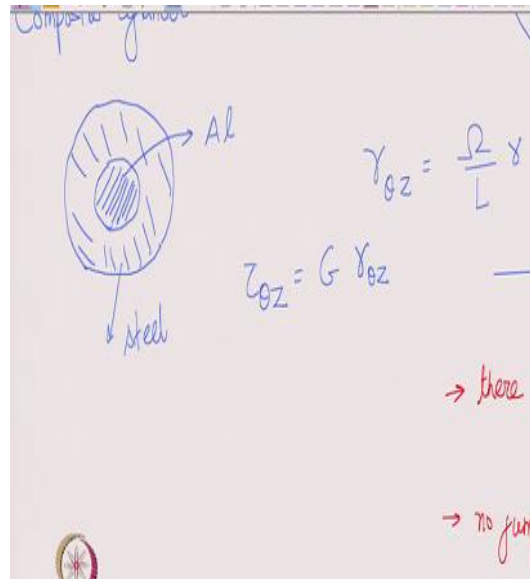 Composite cylinder
Al
γθz = Ω/L r
τθz = G γθz
steel
→ there
→ no jum